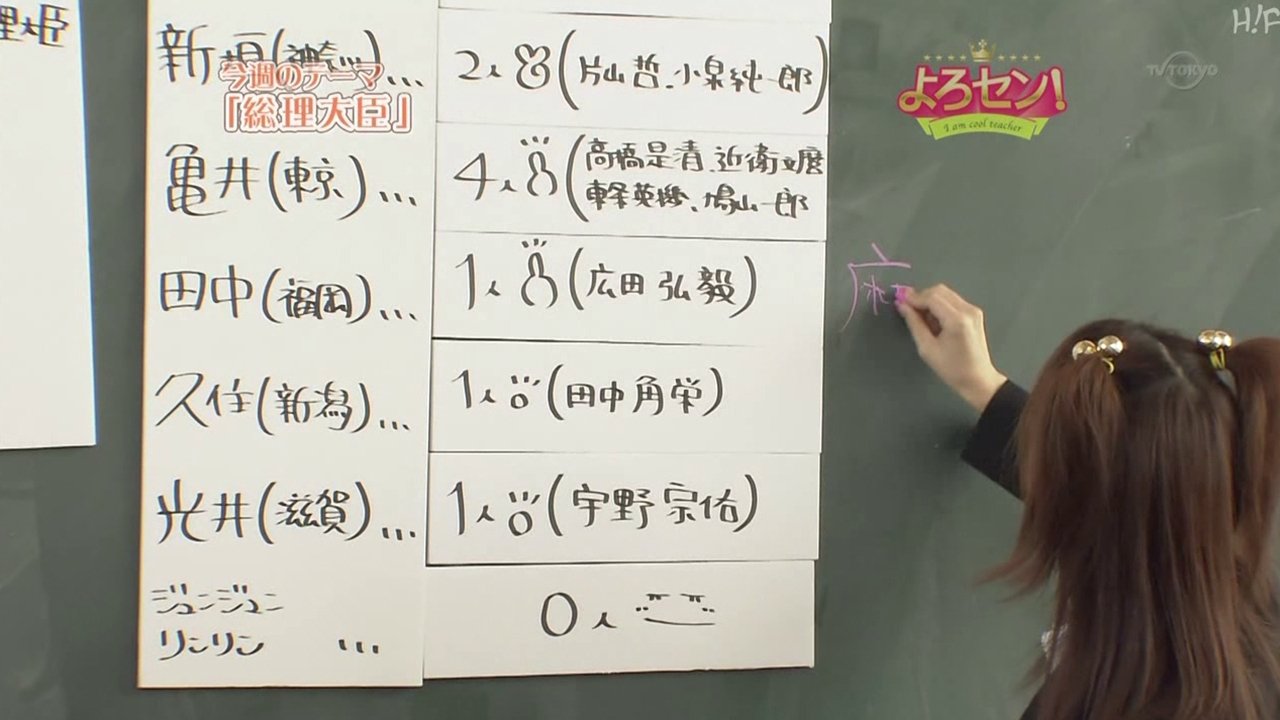 理大臣
H!F
TV TOKYO
よろセン!
I am cool teacher
今週のテーマ
「総理大臣」
新垣(神奈川)...
2人(片山哲、小泉純一郎)
亀井(東京)...
4人(高橋是清、近衛文麿
東条英機、鳩山一郎
田中(福岡)...
1人(広田弘毅)
久住(新潟)...
1人(田中角栄)
光井(滋賀)...
1人(宇野宗佑)
ジュンジュン
リンリン ...
0人